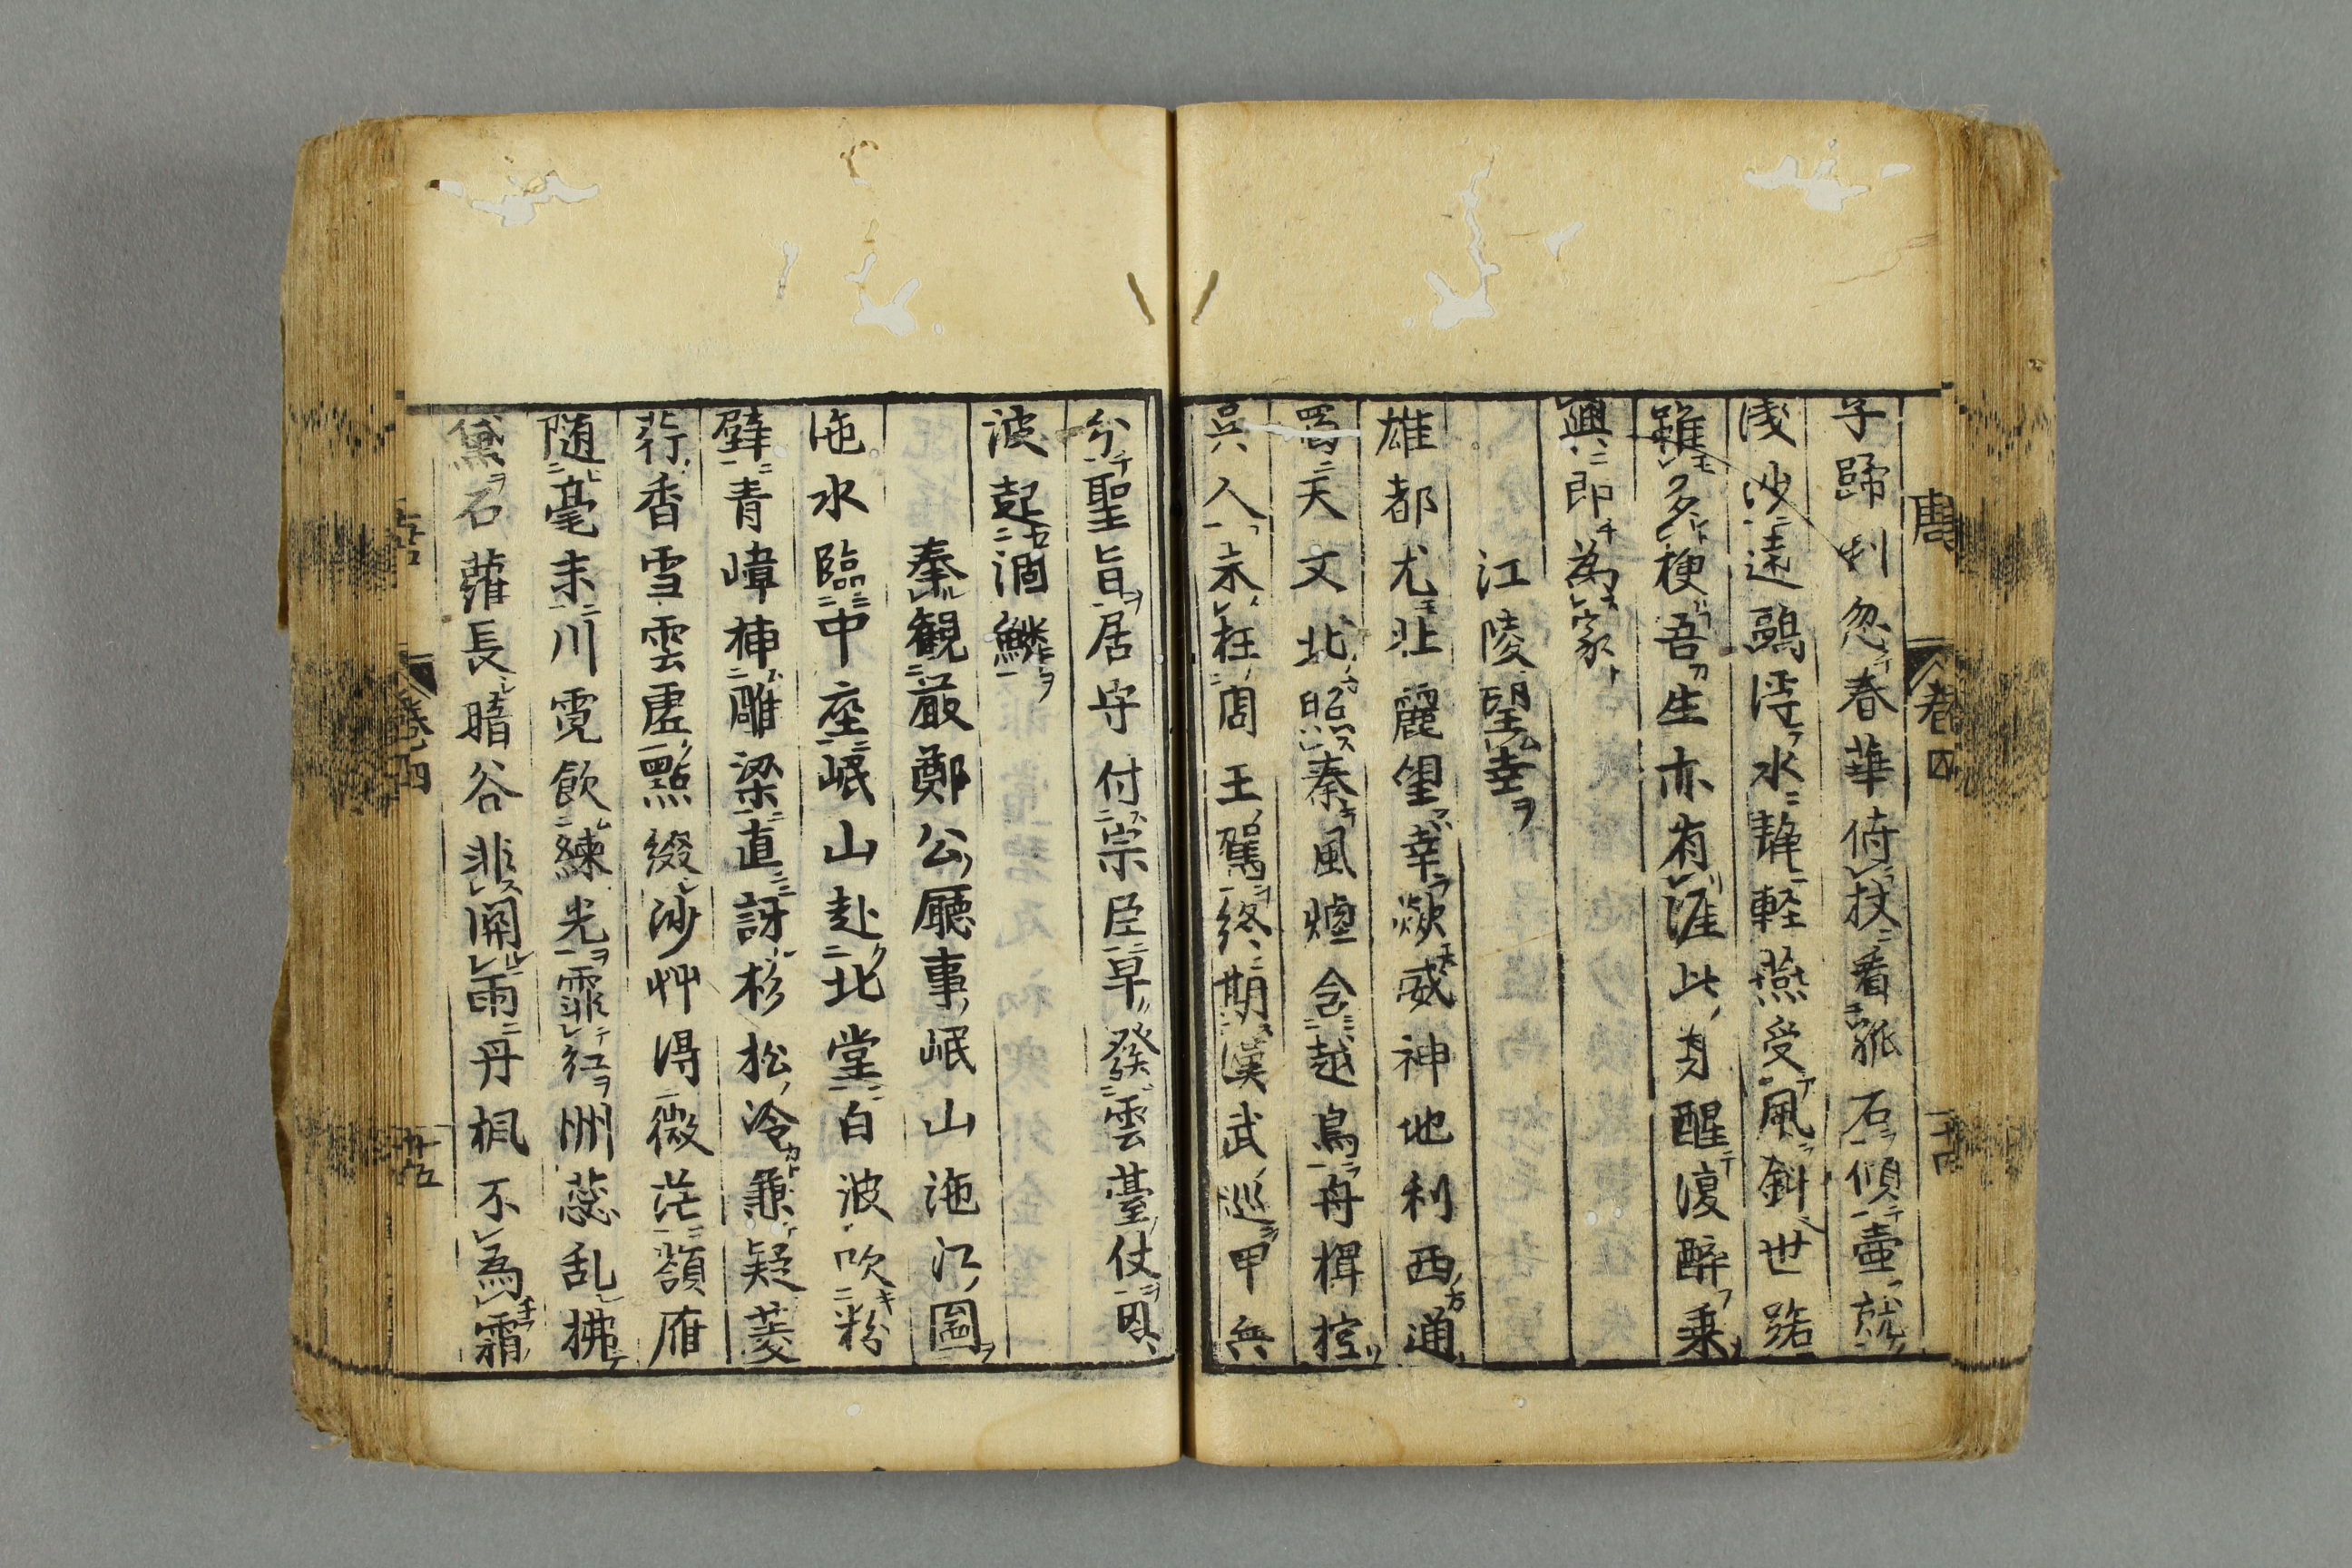 唐 卷四 廿四
子歸到忽春華倚杖看孤石傾壷就
浅沙遠鷗浮水静軽燕受風斜世路
雖多梗吾生亦有涯此身醒復醉乗
興即為家
江陵望幸
雄都尤壮麗望幸欻威神地利西通
蜀天文北照秦風煙含越鳥舟楫控
吳人未枉周王駕終期漢武巡甲兵
分聖旨居守付宗臣早發雲臺仗恩
波起涸鱗
奉観厳鄭公廳事岷山沲江圖
沲水臨中座岷山赴北堂白波吹粉
壁青嶂挿雕梁直訝杉松冷兼疑菱
荇香雪雲虚點綴沙艸得微茫嶺雁
随毫末川霓飲練光霏紅洲蕊乱拂
黛石蘿長暗谷非關雨丹楓不為霜
卷四 廿五